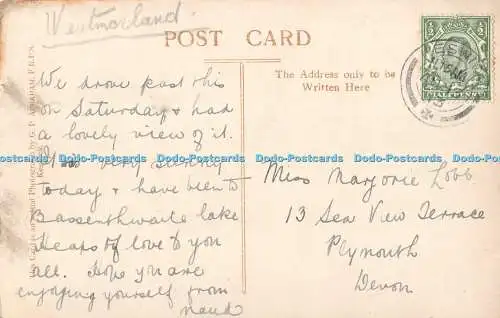 Westmorland.
POST CARD
The Address only to be
Written Here
HALFPENNY
We drove past this
on Saturday & had
a lovely view of it.
very sunny
today & have been to
Bassenthwaite lake
Heaps of love to you
all. Hope you are
enjoying yourself from
Maud
Miss Marjorie Lobb
13 Sea View Terrace
Plymouth
Devon
Dodo-Postcards Dodo-Postcards Dodo-Postcards Dodo-Postcards Dodo-Postcards Dodo-Postcards